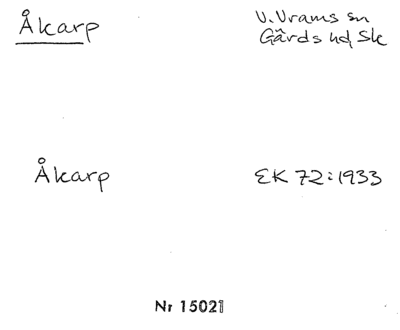 Åkarp
V. Vrams sn
Gärds hd Sk
Åkarp
EK 72:1933
Nr 15021